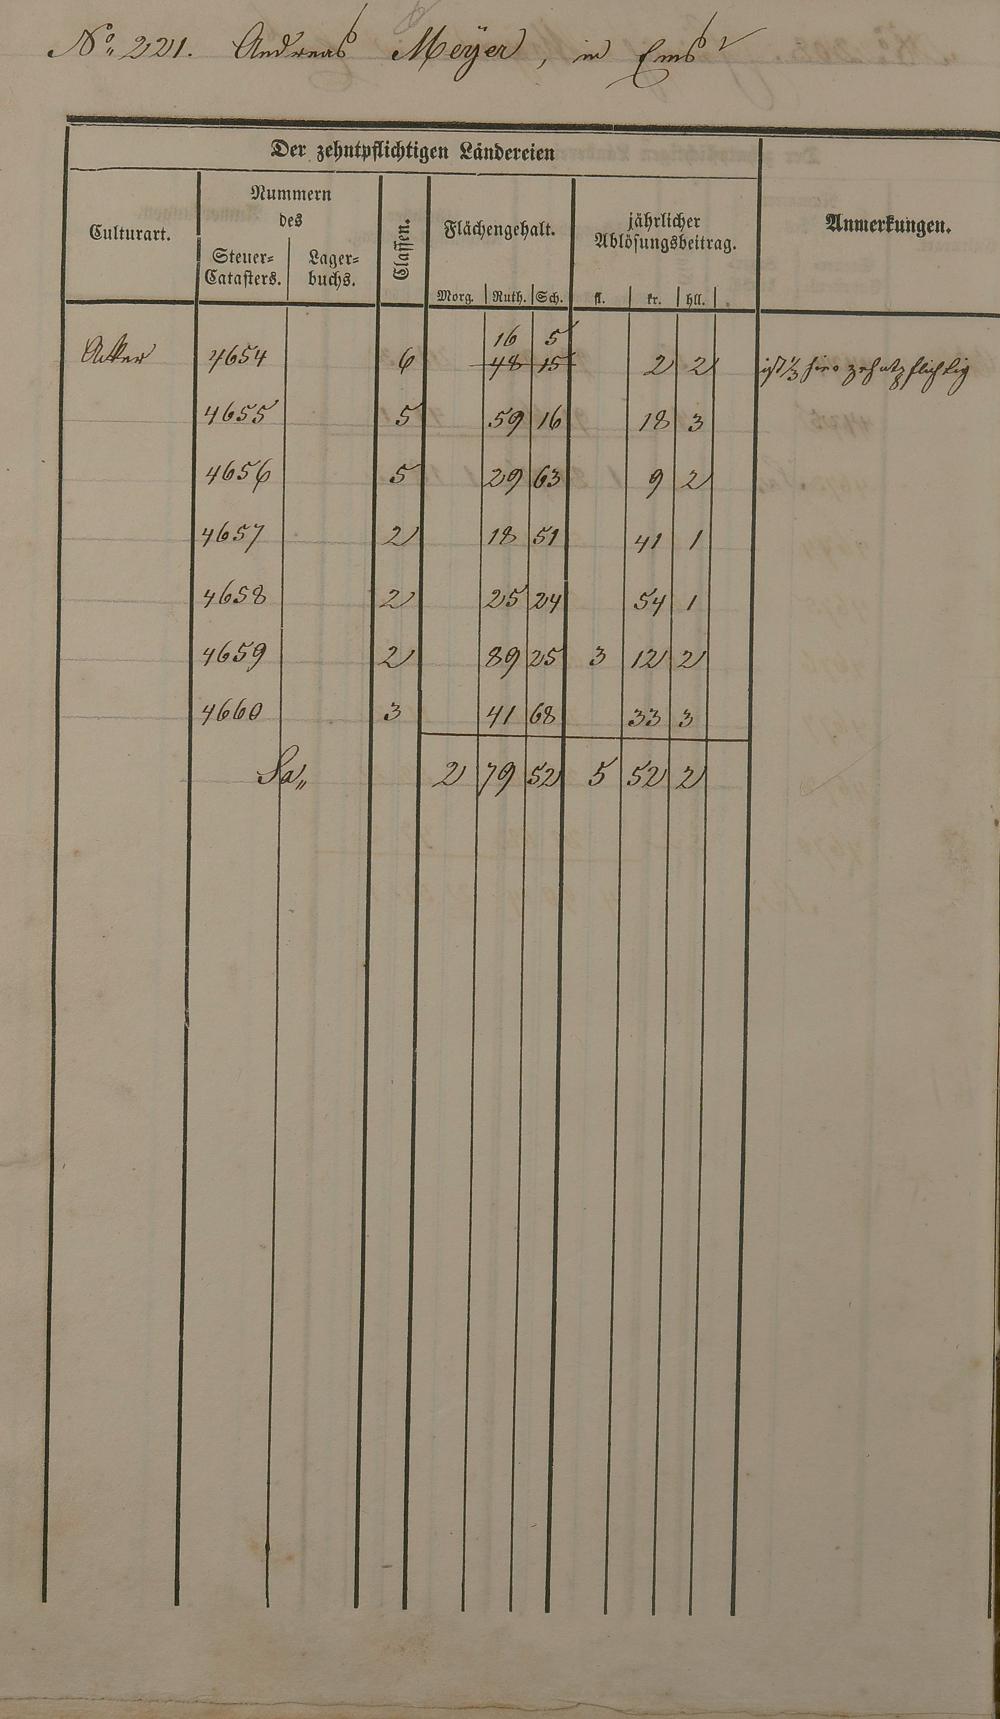 No. 221. Andreas Meÿer, in Ems
Der zehntpflichtigen Ländereien
Culturart.
Nummern
des
Steuer=
Catasters.
Lager=
buchs.
Classen.
Flächengehalt.
Morg. Ruth. Sch.
jährlicher
Ablösungsbeitrag.
fl. kr. hll.
Anmerkungen.
16 5
Acker 4654 6 48 15 2 2 ist 1/3 hier zehntpflichtig
4655 5 59 16 18 3
4656 5 29 63 9 2
4657 2 18 51 41 1
4658 2 25 24 54 1
4659 2 89 25 3 12 2
4660 3 41 68 33 3
Sa,, 2 79 52 5 52 2